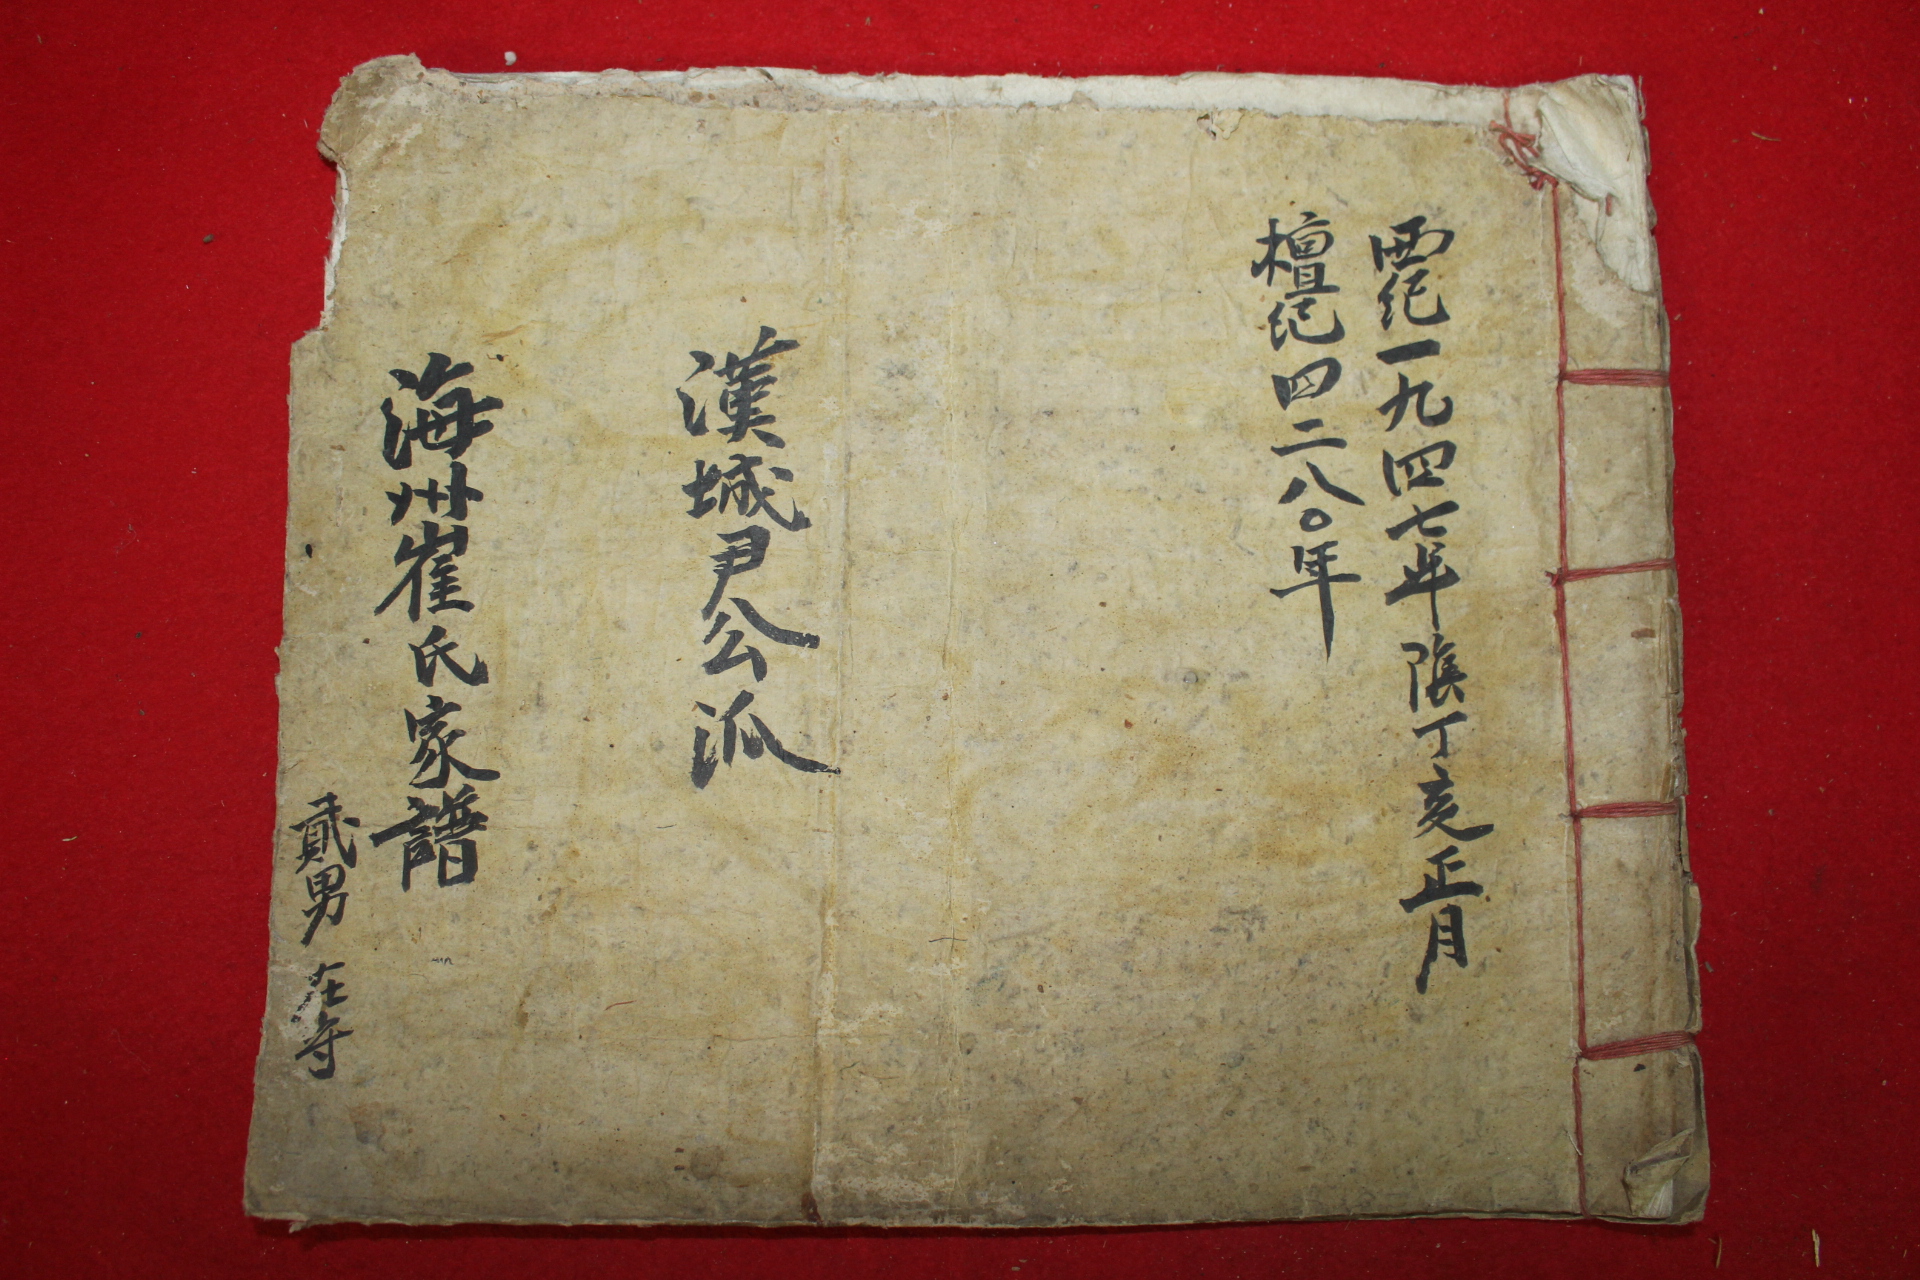 西紀一九四七年陰丁亥正月
檀紀四二八〇年
漢城尹公派
海州崔氏家譜
貳男 在守